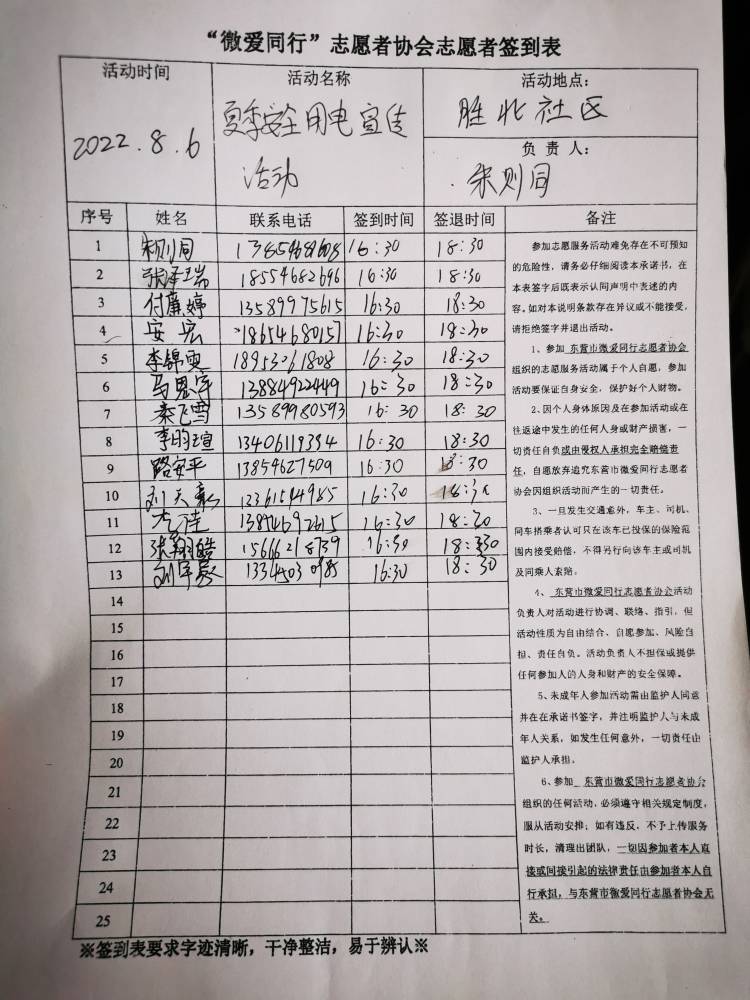 “微爱同行”志愿者协会志愿者签到表
活动时间 活动名称 活动地点：
2022.8.6 夏季安全用电宣传 胜北社区
活动
负责人：
朱则同
序号 姓名 联系电话 签到时间 签退时间 备注
1 朱则同 13854681608 16:30 18:30
2 张泽瑞 18554682696 16:30 18:30
3 付廉婷 13589975615 16:30 18:30
4 安宏 18654680157 16:30 18:30
5 李锦雯 18953261808 16:30 18:30
6 马恩宇 13884922449 16:30 18:30
7 秦飞雪 13589980593 16:30 18:30
8 李昀瑄 13406119394 16:30 18:30
9 路安平 13854627509 16:30 18:30
10 16:30 18:30
11 16:30 18:30
12 张翔皓 16:30 18:30
13 16:30 18:30
14
15
16
17
18
19
20
21
22
23
24
25
参加志愿服务活动难免存在不可预知
的危险性，请务必仔细阅读本承诺书，在
本表签字后既表示认同声明中表述的内
容。如对本说明条款存在异议或不能接受，
请拒绝签字并退出活动。
1、参加 东营市微爱同行志愿者协会
组织的志愿服务活动属于个人自愿，参加
活动要保证自身安全，保护好个人财物。
2、因个人身体原因及在参加活动或在
往返途中发生的任何人身或财产损害，一
切责任自负或由侵权人承担完全赔偿责
任，自愿放弃追究东营市微爱同行志愿者
协会因组织活动而产生的一切责任。
3、一旦发生交通意外，车主、司机、
同车搭乘者认可只在该车已投保的保险范
围内接受赔偿，不得另行向该车主或司机
及同乘人索赔。
4、 东营市微爱同行志愿者协会活动
负责人对活动进行协调、联络、指引，但
活动性质为自由结合、自愿参加、风险自
担、责任自负。活动负责人不担保或提供
任何参加人的人身和财产的安全保障。
5、未成年人参加活动需由监护人同意
并在在承诺书签字，并注明监护人与未成
年人关系，如发生任何意外，一切责任由
监护人承担。
6、参加 东营市微爱同行志愿者协会
组织的任何活动，必须遵守相关规定制度，
服从活动安排；如有违反，不予上传服务
时长，清理出团队，一切因参加者本人直
接或间接引起的法律责任由参加者本人自
行承担，与东营市微爱同行志愿者协会无
关。
※签到表要求字迹清晰，干净整洁，易于辨认※